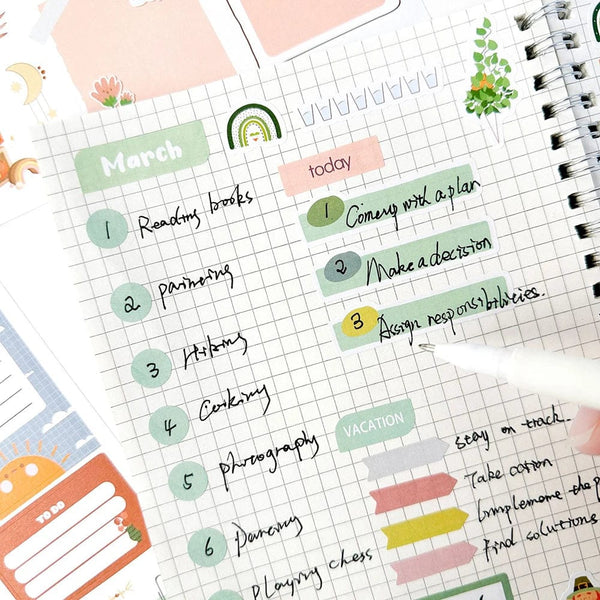 March
1 Reading books
2 painting
3 Hiking
4 Cooking
5 photography
6 Dancing
Playing chess
today
1 Come up with a plan
2 Make a decision
3 Assign responsibilities.
VACATION
stay on track.
Take action
the
Find solutions
TO DO